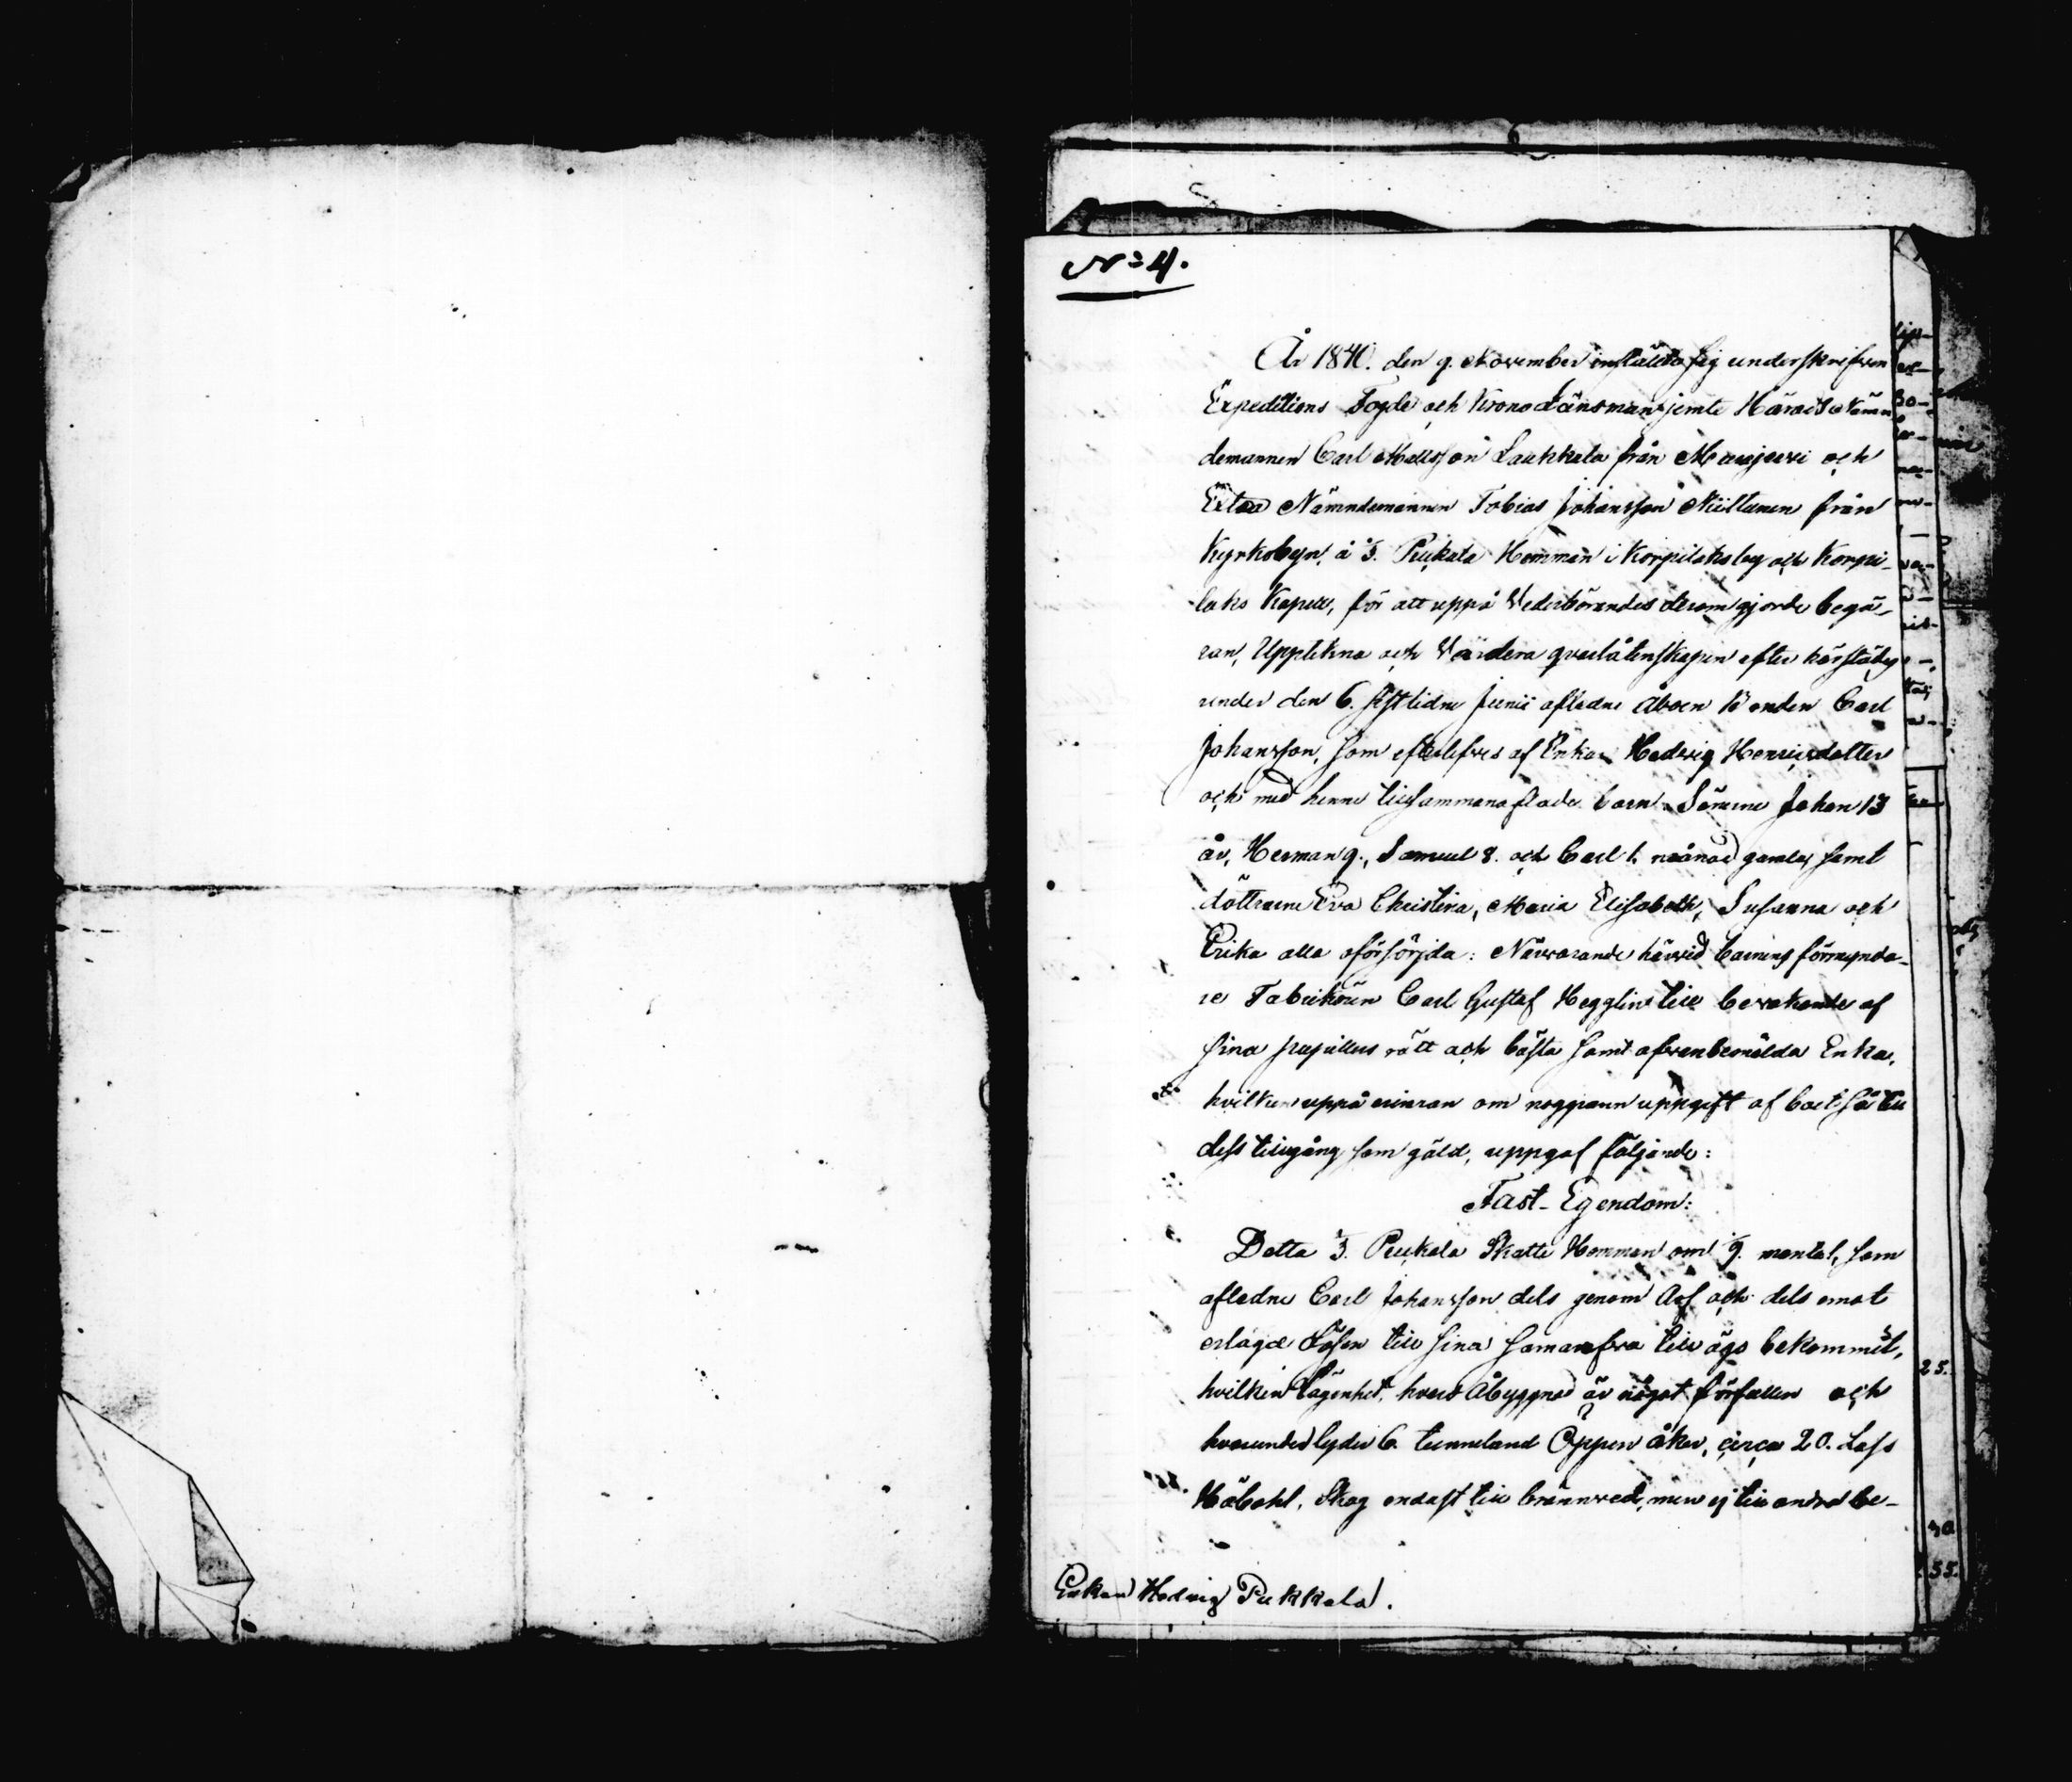 No 4.
År 1840. den 9. November inställda sig underskrifven
Expeditions Fogde och Krono Länsman, jemte Härads Nämn
demannen Carl Mattsson Laukkala från Muurjärvi och
Extra Nämndemannen Tobias Johansson Niittunen från
Kyrkobyn, å 3. Pukala Hemman i Korpilaks by och Korpi-
laks Kapell, för att uppå Vederbörandes derom gjorde begä-
ran, Upptekna och Värdera qvarlåtenskapen efter härstädes
under den 6. sistlidne Junii aflidne Åboen Bonden Carl
Johansson, som efterlefves af Enkan Hedvig Henricsdotter
och med henne tillsammanaflade barn Sönerne Johan 13
år, Herman 9., Samuel 8. och Carl 1. månad gamla, samt
döttrarne Eva Christina, Maria Elisabeth, Susanna och
Erika alla oförsörjda: Närvarande härvid barnens förmynda-
re Fabrikören Carl Gustaf Hegglin till bevakande af
sina pupillers rätt och bästa samt ofvanbemälda Enka,
hvilken uppå erinran om noggrann uppgift af boet så till
dess tillgång som gäld, uppgaf följande:
Fast-Egendom:
Detta 3. Pukala Skatte Hemman om 1/9. mantal, som
aflidne Carl Johansson dels genom Arf och dels emot
erlagd Lösen till sina Samarfva till ägo bekommit,
hvilken lägenhet, hvars Åbyggnad är något förfallen och
hvarunder lyder 6. tunneland Öppen åker, circa 20. Lass
Höbohl, Skog endast till brännved, men ej till andra be-
Enkan Hedvig Pukkala.
25.
30
55.